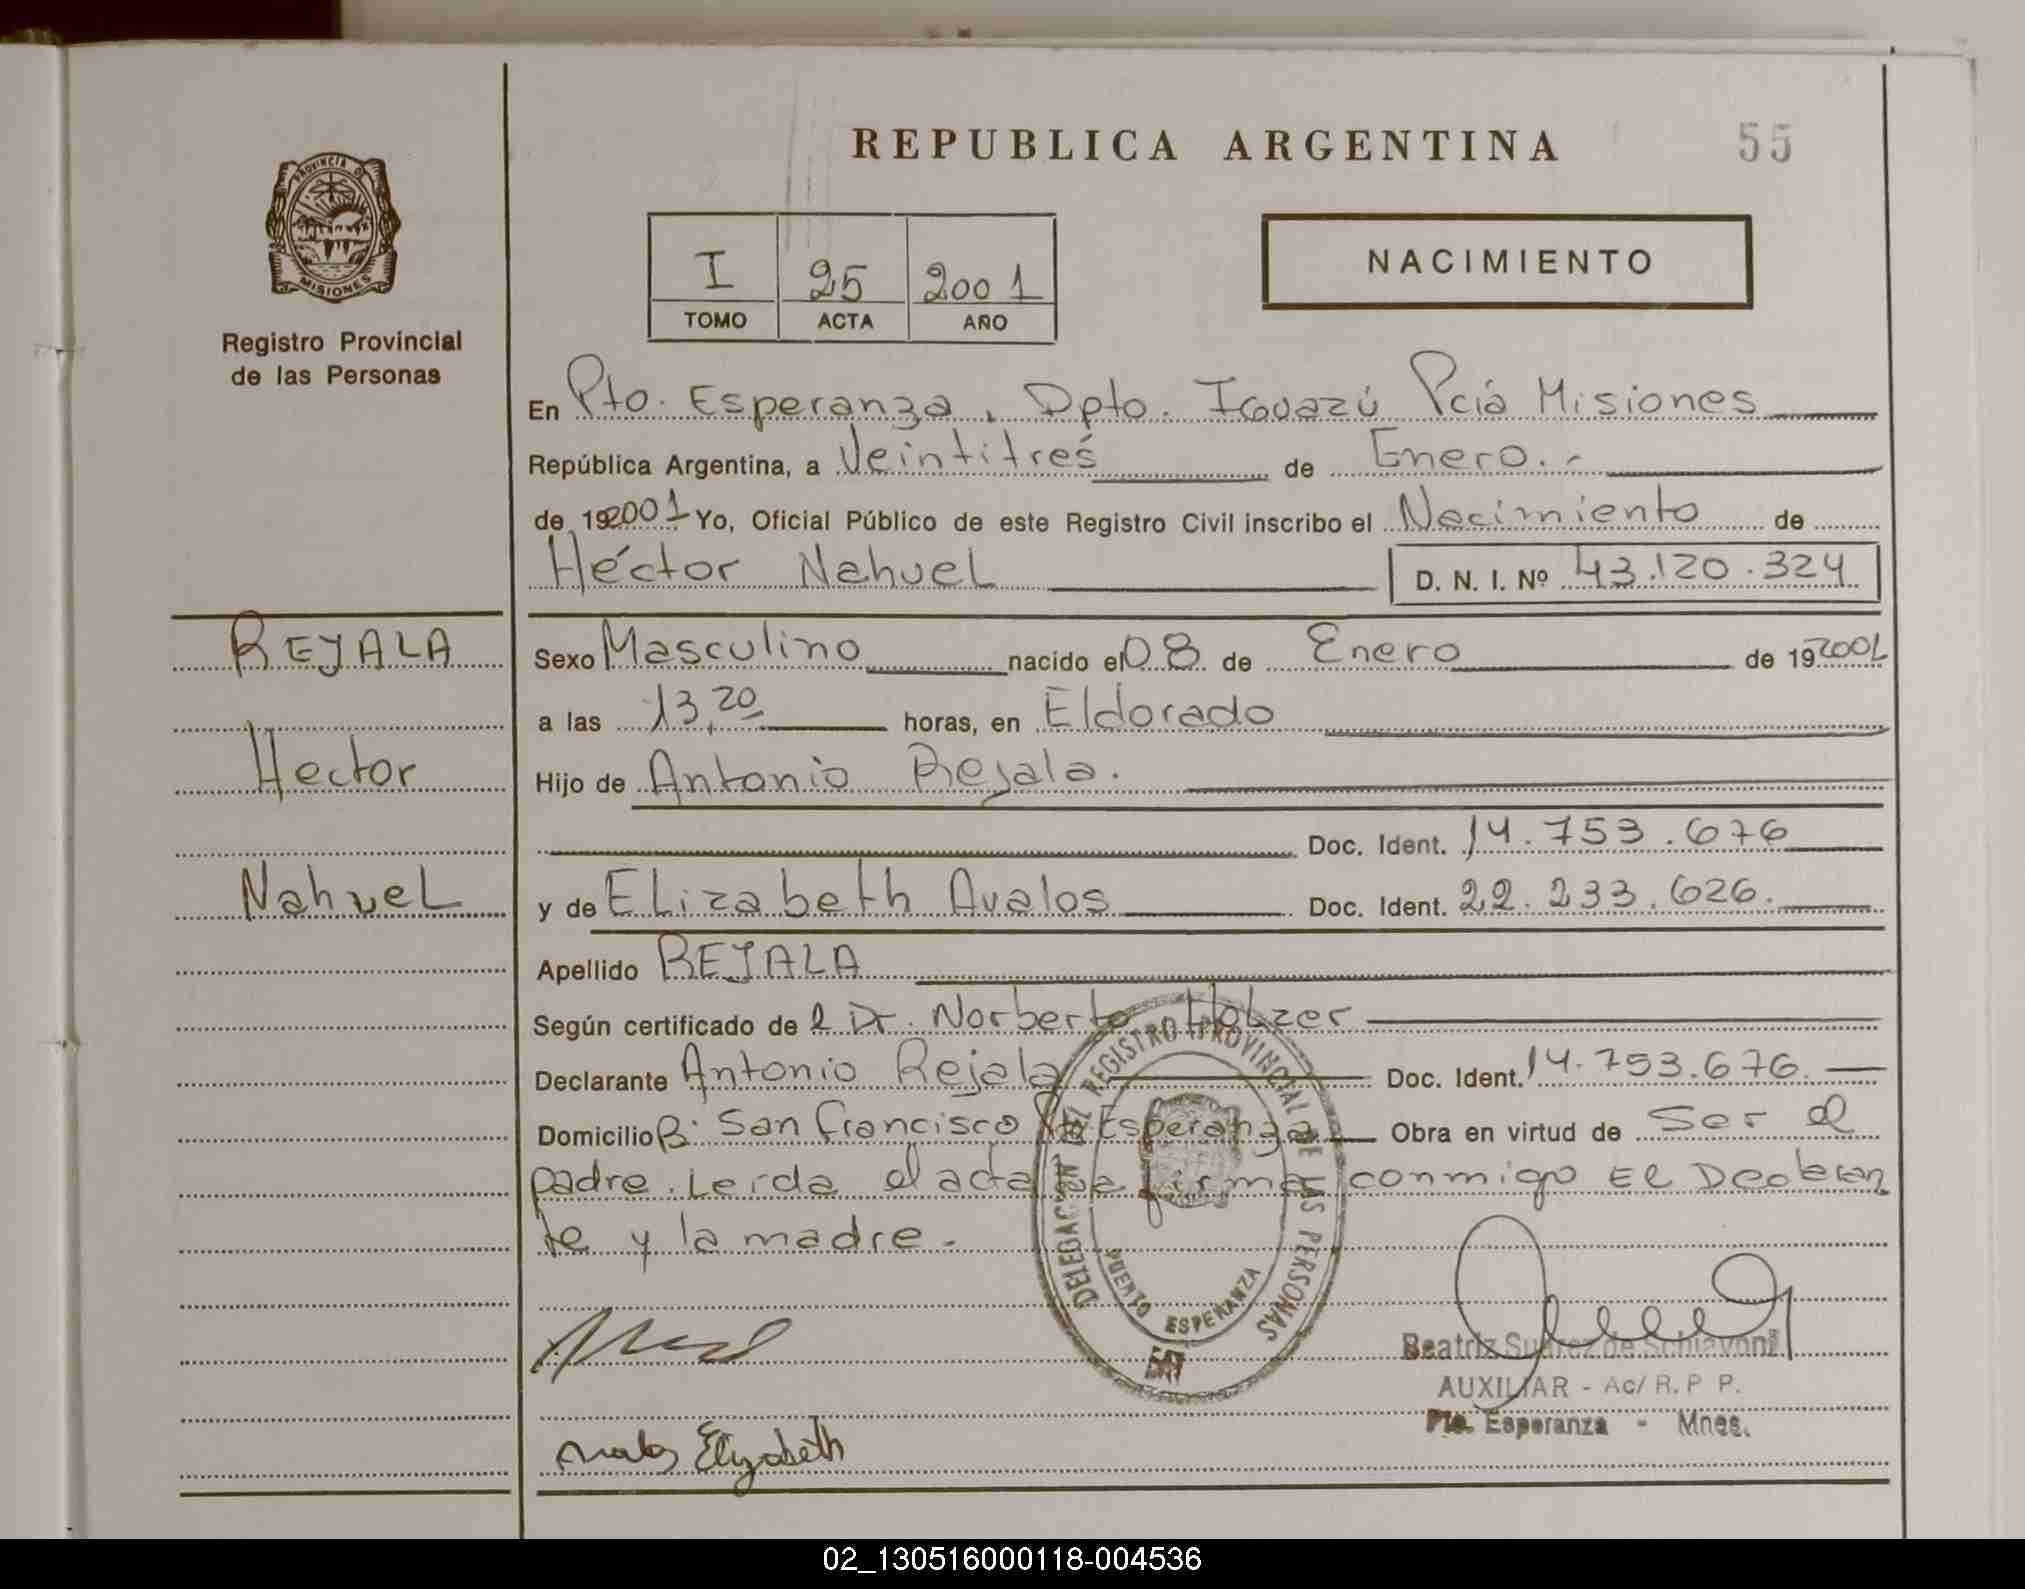 REPUBLICA ARGENTINA
55
PROVINCIA DE
MISIONES
Registro Provincial
de las Personas
I 25 2001
TOMO ACTA AÑO
NACIMIENTO
En Pto. Esperanza, Dpto. Iguazú Pcia Misiones
República Argentina, a Veintitrés de Enero.-
de 192001 Yo, Oficial Público de este Registro Civil inscribo el Nacimiento de
Héctor Nahuel D. N. I. Nº 43.120.324
REJALA
Hector
Nahuel
Sexo Masculino nacido el 08 de Enero de 192001
a las 13,20 horas, en Eldorado
Hijo de Antonio Rejala.
Doc. Ident. 14.753.676
y de Elizabeth Avalos Doc. Ident. 22.233.626.
Apellido REJALA
Según certificado de el Dr. Norberto Holzer
Declarante Antonio Rejala Doc. Ident. 14.753.676.
Domicilio B: San Francisco Pto Esperanza Obra en virtud de Ser el
padre. Leida el acta la firma conmigo El Declaran
te y la madre.-
DELEGACION DEL REGISTRO PROVINCIAL DE LAS PERSONAS
PUERTO ESPERANZA
Beatriz Suarez de Schiavoni
AUXILIAR - Ac/ R. P P.
Pto. Esperanza - Mnes.
Avalos Elizabeth
02_130516000118-004536